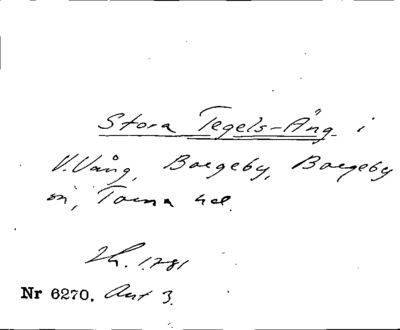 Stora Tegels-Äng i
V.Vång, Borgeby, Borgeby
sn, Torna hd.
Lh. 1781
Nr 6270. Akt 3.